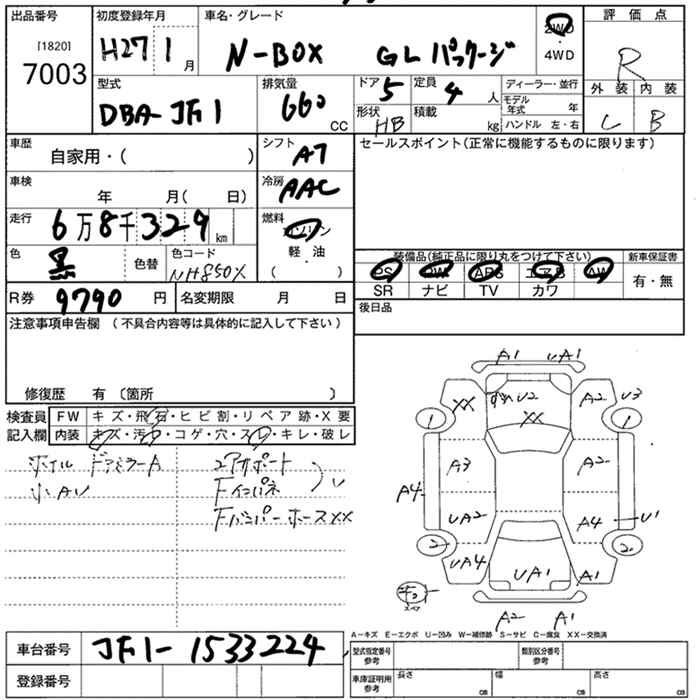 出品番号 [1820] 7003
初度登録年月 H27 1 月
車名・グレード N-BOX GLパッケージ
2WD・4WD
評価点 R
型式 DBA-JF1
排気量 660 CC
ドア 5
定員 4 人
形状 HB
積載 kg
ディーラー・並行
モデル年式 年
ハンドル 左・右
外装 内装 B
車歴 自家用・( )
シフト AT
セールスポイント(正常に機能するものに限ります)
車検 年 月( 日)
冷房 AAC
走行 6万8千329 km
燃料 ガソリン 軽・油 ( )
色 黒 色替
色コード NH850X
装備品(純正品に限り丸をつけて下さい) 新車保証書
PS PW ABS エアB AW 有・無
SR ナビ TV カワ
R券 9790 円
名変期限 月 日
後日品
注意事項申告欄 (不具合内容等は具体的に記入して下さい)
修復歴 有 〔箇所 〕
検査員 記入欄
FW キズ・飛石・ヒビ割・リペア跡・X要
内装 キズ・汚れ・コゲ・穴・スレ・キレ・破レ
ホイル ドアミラーA
小AU
コアサポート
Fインパネ
Fバンパーホース XX
A1 UA1
XX U2 XX A2 U3
1 1
A3 A2
A4 UA2 A4 U1
2 2
UA4 UA1 A1
A2 A1
A-キズ E-エクボ U-凹み W-補修跡 S-サビ C-腐食 XX-交換済
車台番号 JF1-1533224
型式指定番号 参考
類別区分番号 参考
登録番号
車庫証明用 参考
長さ cm 幅 cm 高さ cm